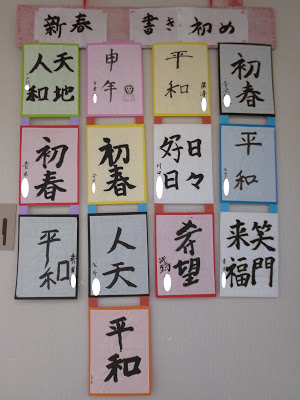 新春 書き初め
天地
人和
申年
平和
初春
初春
初春
日々
好日
平和
平和
人天
希望
笑門
来福
平和